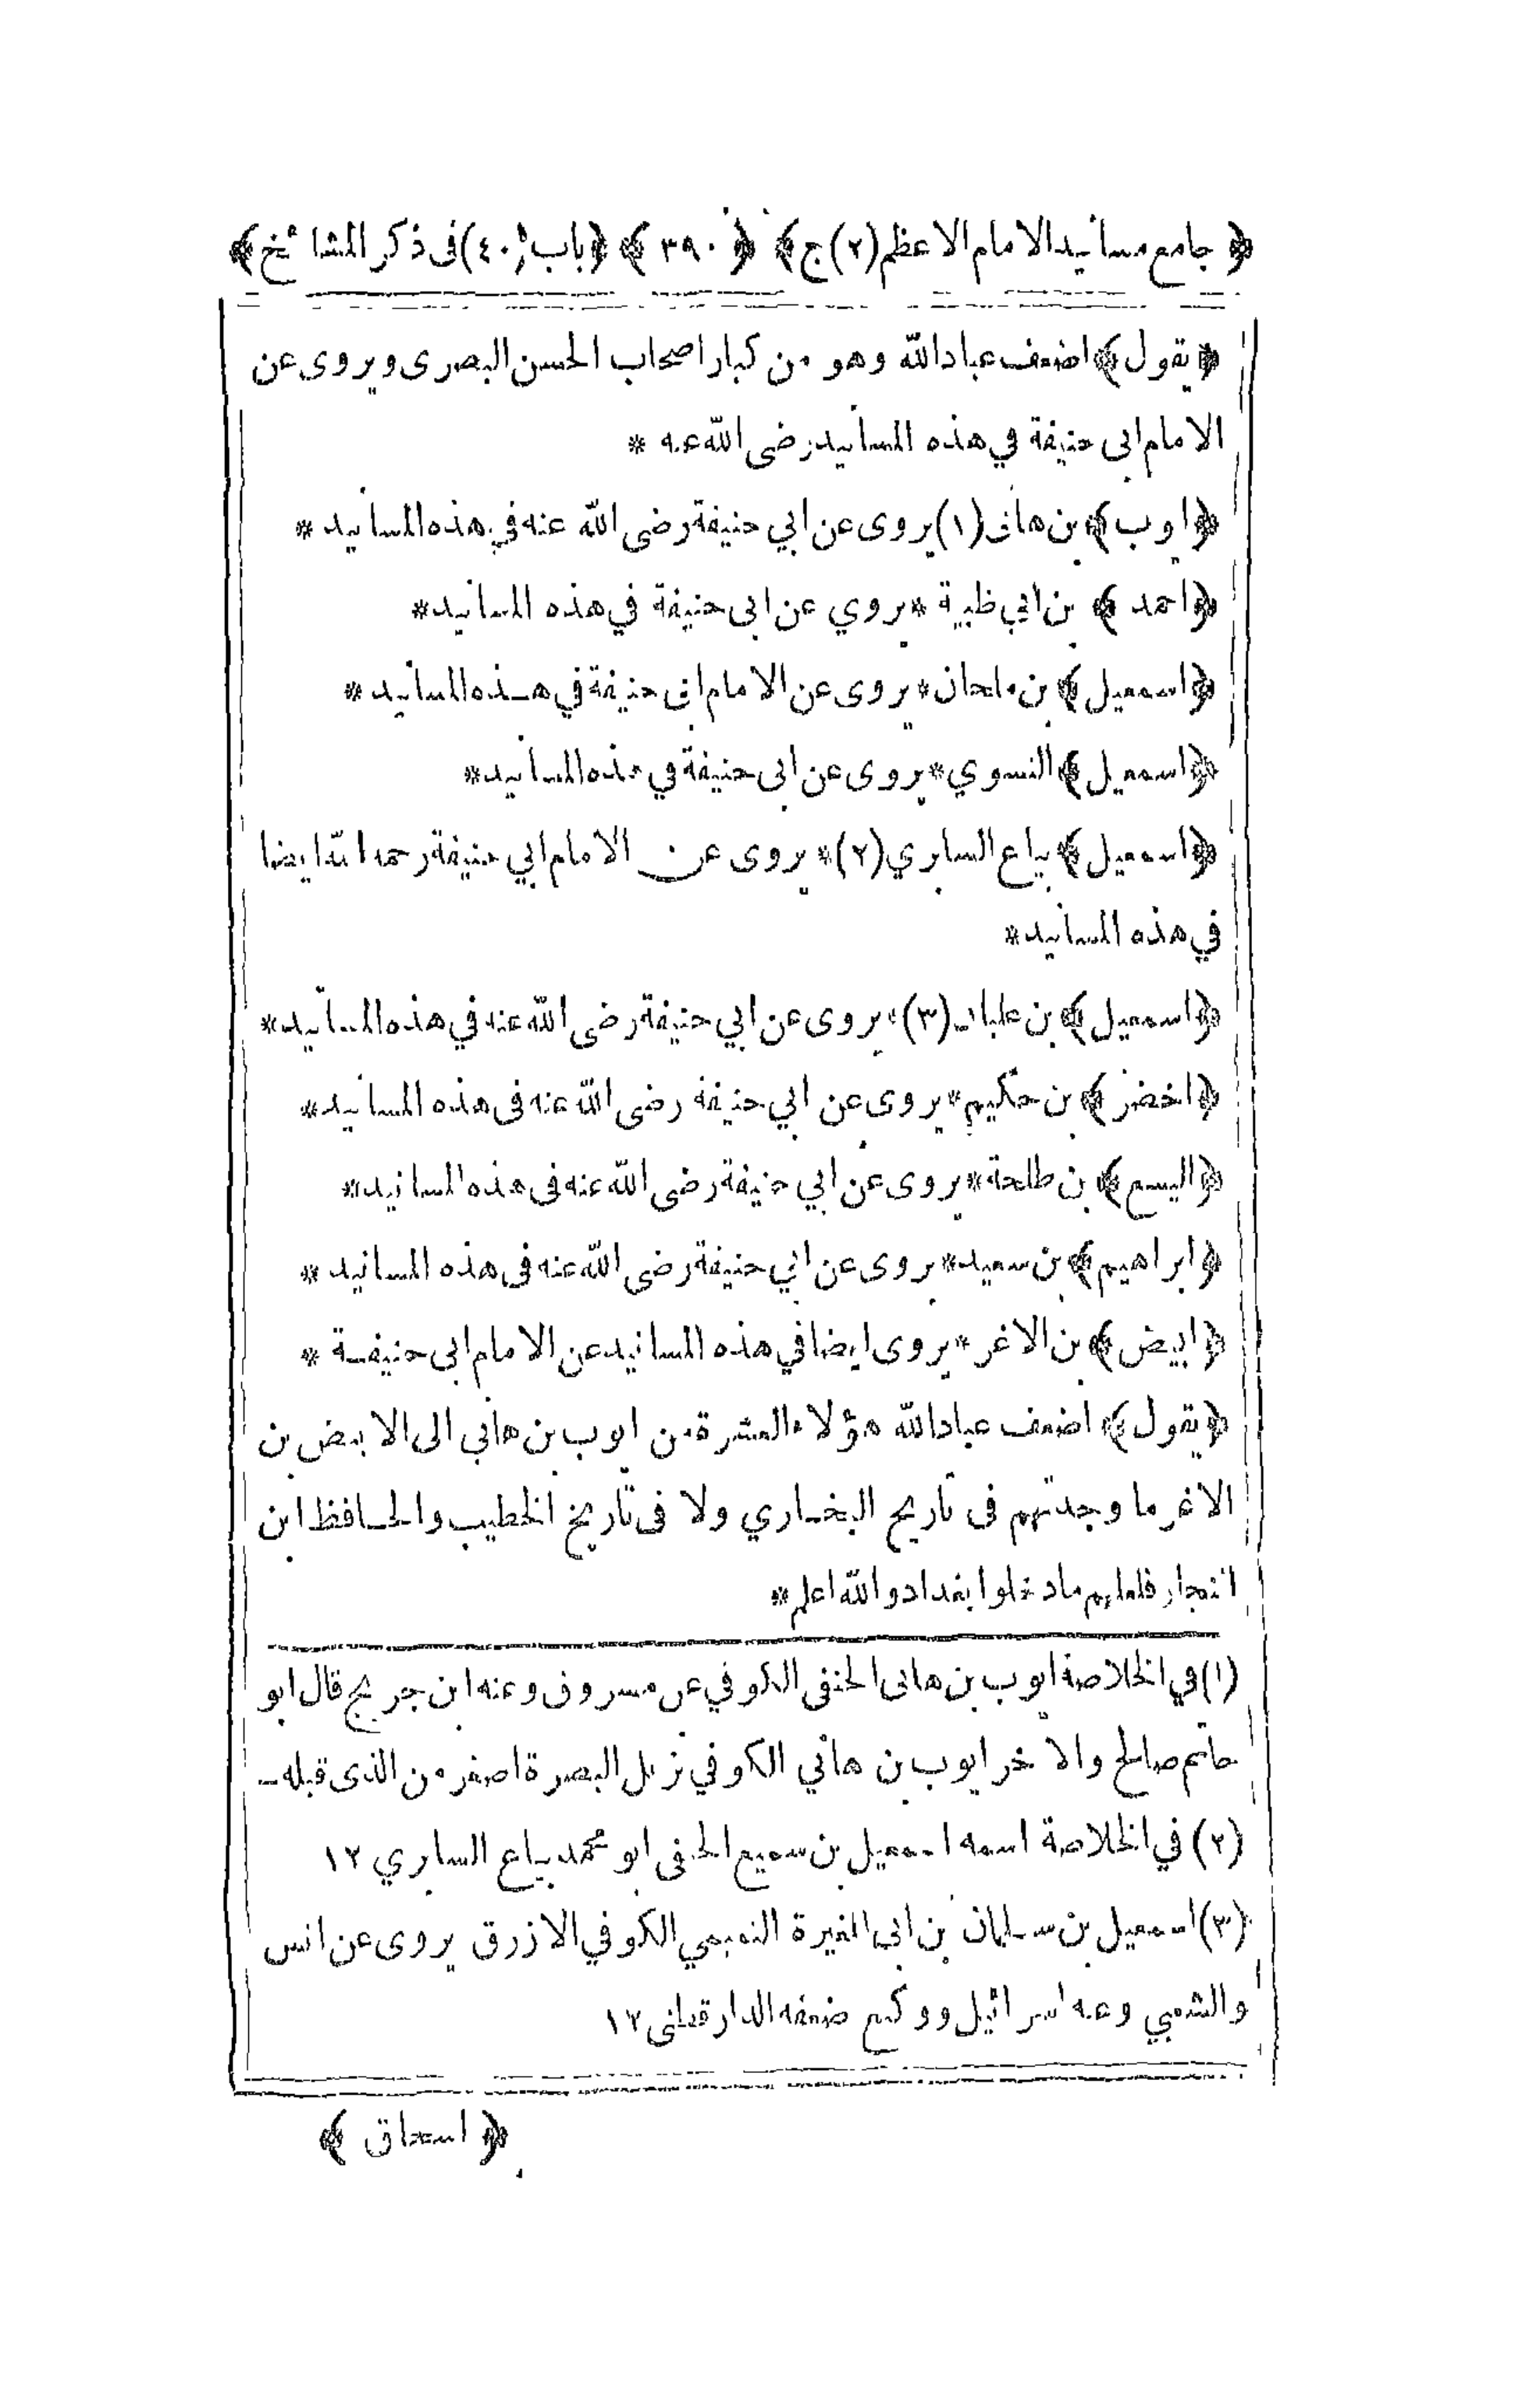 ﴿ جامع مسانيد الامام الاعظم (٢) ج ﴾ ﴿ ٣٩٠ ﴾ ﴿ باب (٤٠) فى ذكر المشائخ ﴾
﴿ يقول ﴾ اضعف عباد الله وهو من كبار اصحاب الحسن البصرى ويروى عن
الامام ابى حنيفة في هذه المسانيد رضى الله عنه *
﴿ ايوب ﴾ بن هانى (١) يروى عن ابي حنيفة رضى الله عنه في هذه المسانيد *
﴿ احمد ﴾ بن ابي ظبية * يروي عن ابى حنيفة في هذه المسانيد *
﴿ اسمعيل ﴾ بن ملحان * يروى عن الامام ابى حنيفة في هـذه المسانيد *
﴿ اسمعيل ﴾ النسوي * يروى عن ابى حنيفة في هذه المسانيد *
﴿ اسمعيل ﴾ بياع السابري (٢) * يروى عن الامام ابي حنيفة رحمه الله ايضا
في هذه المسانيد *
﴿ اسمعيل ﴾ بن (٣) * يروى عن ابي حنيفة رضى الله عنه في هذه المسانيد *
﴿ اخضر ﴾ بن حكيم * يروى عن ابي حنيفة رضى الله عنه فى هذه المسانيد *
﴿ اليسع ﴾ بن طلحة * يروى عن ابي حنيفة رضى الله عنه فى هذه المسانيد *
﴿ ابراهيم ﴾ بن سعيد * يروى عن ابي حنيفة رضى الله عنه فى هذه المسانيد *
﴿ ابيض ﴾ بن الاغر * يروى ايضا في هذه المسانيد عن الامام ابى حنيفـة *
﴿ يقول ﴾ اضعف عباد الله هؤلاء العشرة من ايوب بن هاني الى الابيض بن
الاغر ما وجدتهم فى تاريخ البخـاري ولا فى تاريخ الخطيب والحـافظ ابن
النجار فلعلهم ما دخلوا بغداد والله اعلم *
(١) في الخلاصة ايوب بن هانى الحنفى الكوفي عن مسروق وعنه ابن جريج قال ابو
حاتم صالح والاخر ايوب بن هاني الكوفي نزيل البصرة اصغر من الذى قبله ـ
(٢) في الخلاصة اسمه اسمعيل بن سميع الحنفى ابو محمد بياع السابري ١٢
(٣) اسمعيل بن سـلمان بن ابى المغيرة التميمي الكوفي الازرق يروى عن انس
والشعبي وعنه اسرائيل ووكيع ضعفه الدارقطنى ١٢
﴿ اسحاق ﴾